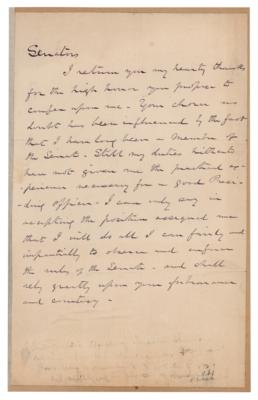 Senators
I return you my hearty thanks
for the high honor you propose to
confer upon me - Your choice no
doubt has been influenced by the fact
that I have long been a Member of
the Senate - Still my duties hitherto
have not given me the practical ex-
perience necessary for a good Presi-
ding officer - I can only say in
accepting the position assigned me
that I will do all I can fairly and
impartially to observe and enforce
the rules of the Senate - and shall
rely greatly upon your forbearance
and courtesy -